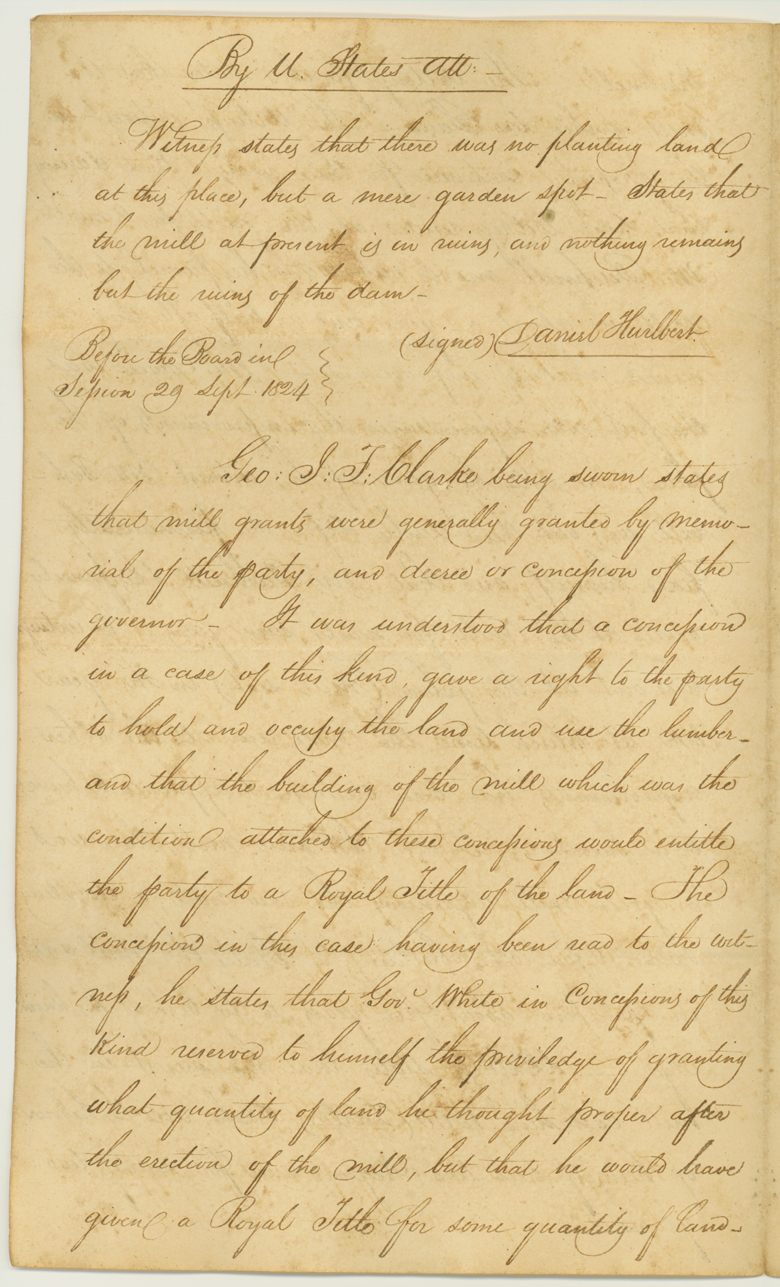 By U. States Att: -
Witness states that there was no planting land
at this place, but a mere garden spot - States that
the mill at present is in ruins, and nothing remains
but the ruins of the dam -
(signed) Daniel Hurlbert.
Before the Board in
Session 29 Sept. 1824
Geo: J: F: Clarke being sworn states
that mill grants were generally granted by memo-
rial of the party, and decree or concession of the
governor - It was understood that a concession
in a case of this kind, gave a right to the party
to hold and occupy the land and use the lumber -
and that the building of the mill which was the
condition attached to these concessions would entitle
the party to a Royal Title of the land - The
concession in this case having been read to the wit-
ness, he states that Govr. White in Concessions of this
Kind reserved to himself the priviledge of granting
what quantity of land he thought proper after
the erection of the mill, but that he would have
given a Royal Title for some quantity of land -